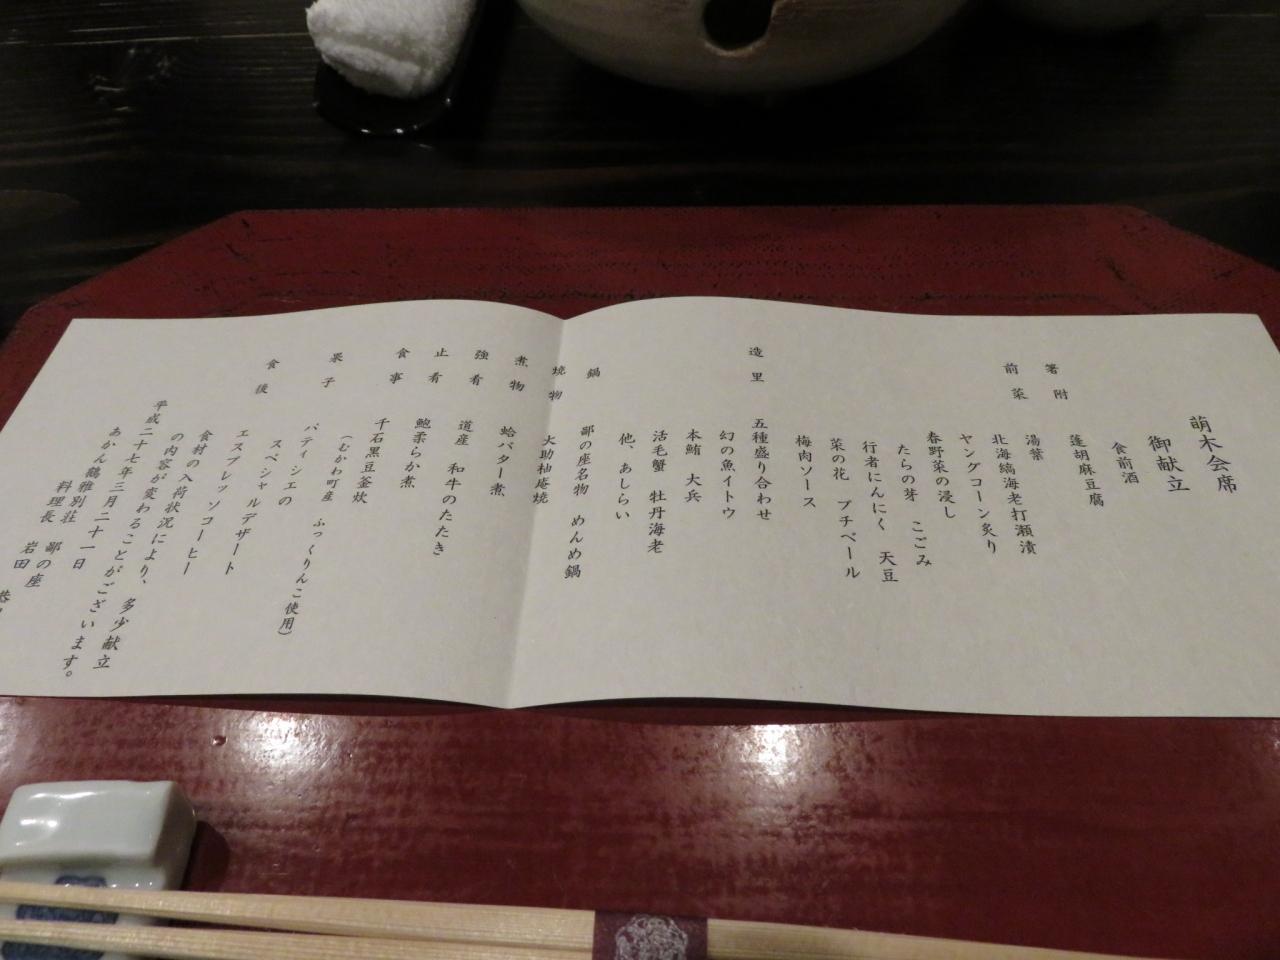 萌木会席
御献立
食前酒
箸附 蓬胡麻豆腐
前菜 湯葉
北海縞海老打瀬漬
ヤングコーン炙り
春野菜の浸し
たらの芽 こごみ
行者にんにく 天豆
菜の花 プチベール
梅肉ソース
造里 五種盛り合わせ
幻の魚イトウ
本鮪 大兵
活毛蟹 牡丹海老
他、あしらい
鍋 鄙の座名物 めんめ鍋
焼物 大助柚庵焼
煮物 蛤バター煮
強肴 道産 和牛のたたき
止肴 鮑柔らか煮
食事 千石黒豆釜炊
(むかわ町産 ふっくりんこ使用)
果子 パティシエの
スペシャルデザート
食後 エスプレッソコーヒー
食材の入荷状況により、多少献立
の内容が変わることがございます。
平成二十七年三月二十一日
あかん鶴雅別荘 鄙の座
料理長 岩田